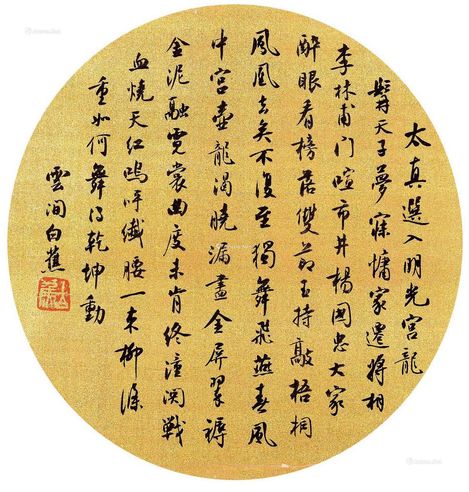 太真選入明光宮龍
髯天子夢寐慵家遷將相
李林甫門喧市井楊國忠大家
醉眼看榜雙莭玉持敲梧桐
鳳凰去矣不復至獨舞飛燕春風
中宮壺龍渴曉漏盡金屏翠褥
金泥融霓裳曲度未肯終潼関戰
血燒天紅嗚呼纖腰一束柳條
重如何舞得乾坤動
雲间白蕉